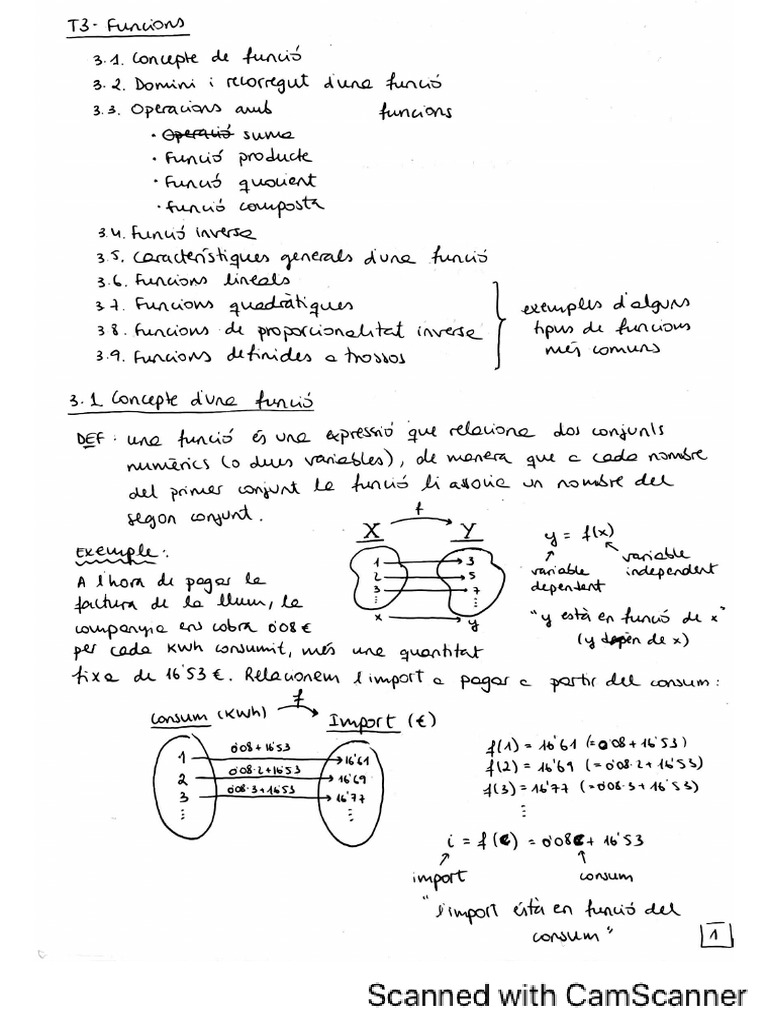 T3- Funcions
3.1. Concepte de funció
3.2. Domini i recorregut d'una funció
3.3. Operacions amb funcions
· Operació suma
· Funció producte
· Funció quocient
· Funció composta
3.4. Funció inversa
3.5. Característiques generals d'una funció
3.6. Funcions lineals
3.7. Funcions quadràtiques
3.8. Funcions de proporcionalitat inversa
3.9. Funcions definides a trossos
exemples d'alguns
tipus de funcions
més comuns
3.1 Concepte d'una funció
DEF: una funció és una expressió que relaciona dos conjunts
numèrics (o dues variables), de manera que a cada nombre
del primer conjunt la funció li associa un nombre del
segon conjunt.
f
X Y
1 3
2 5
3 7
⋮ ⋮
x y
y = f(x)
variable dependent
variable independent
"y està en funció de x"
(y depèn de x)
Exemple:
A l'hora de pagar la
factura de la llum, la
companyia ens cobra 0'08€
per cada KWh consumit, més una quantitat
fixa de 16'53€. Relacionem l'import a pagar a partir del consum:
f
Consum (KWh) Import (€)
1 0'08+16'53 16'61
2 0'08·2+16'53 16'69
3 0'08·3+16'53 16'77
⋮ ⋮
f(1) = 16'61 (=0'08+16'53)
f(2) = 16'69 (=0'08·2+16'53)
f(3) = 16'77 (=0'08·3+16'53)
⋮
i = f(C) = 0'08C+ 16'53
import consum
"l'import està en funció del
consum"
1
Scanned with CamScanner